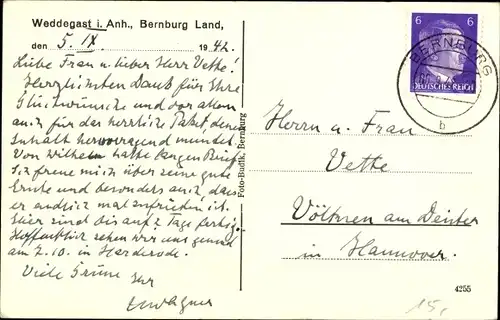 Weddegast i. Anh., Bernburg Land,
den 5. IX. 1942.
Liebe Frau u. lieber Herr Vette!
Herzlichsten Dank für Ihre
Glückwünsche und vor allem
auch für das herrliche Paket, dessen
Inhalt hervorragend mundet.
Von Wilhelm hatte langen Brief.
Ich freue mich über seine gute
Ernte und besonders auch, dass
er endlich mal zufrieden ist.
Hier sind bis auf 2 Tage fertig.
Hoffentlich sehen wir uns gesund
am 7.10. in Harderode.
Viele Grüsse Ihr
Foto-Budtk, Bernburg
6 6
DEUTSCHES REICH
BERNBURG
b
Herrn u. Frau
Vette
Völksen am Deister
in Hannover.
4255
15,